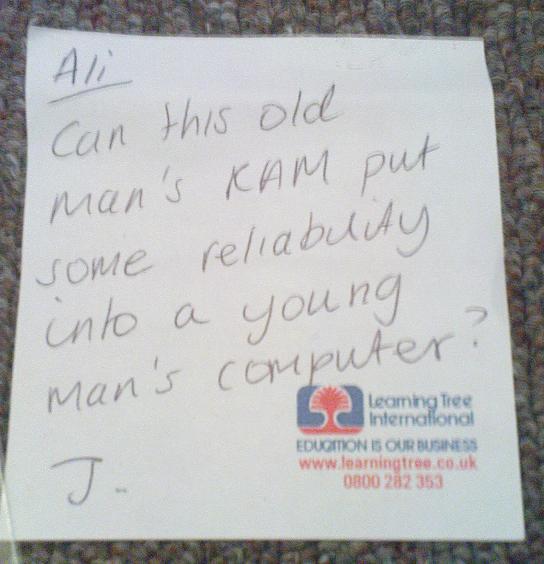 Ali
Can this old
man's RAM put
some reliability
into a young
man's computer?
J.
Learning Tree
International
EDUCATION IS OUR BUSINESS
www.learningtree.co.uk
0800 282 353